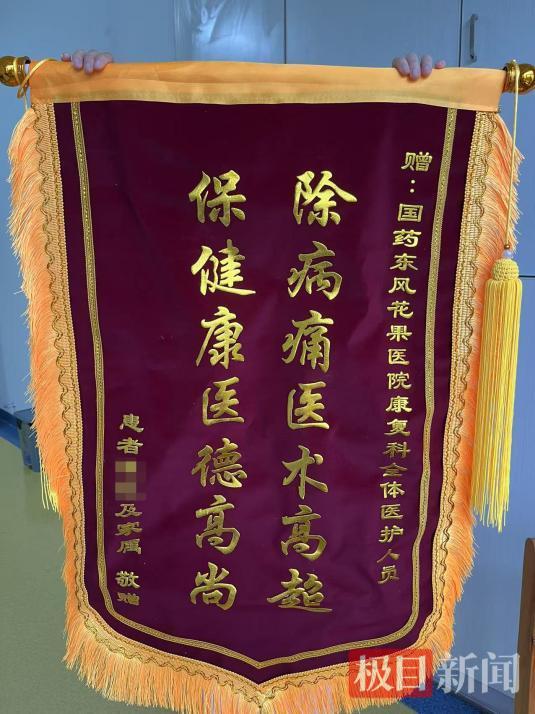 赠：国药东风花果医院康复科全体医护人员
除病痛医术高超
保健康医德高尚
患者及家属 敬赠
极目新闻